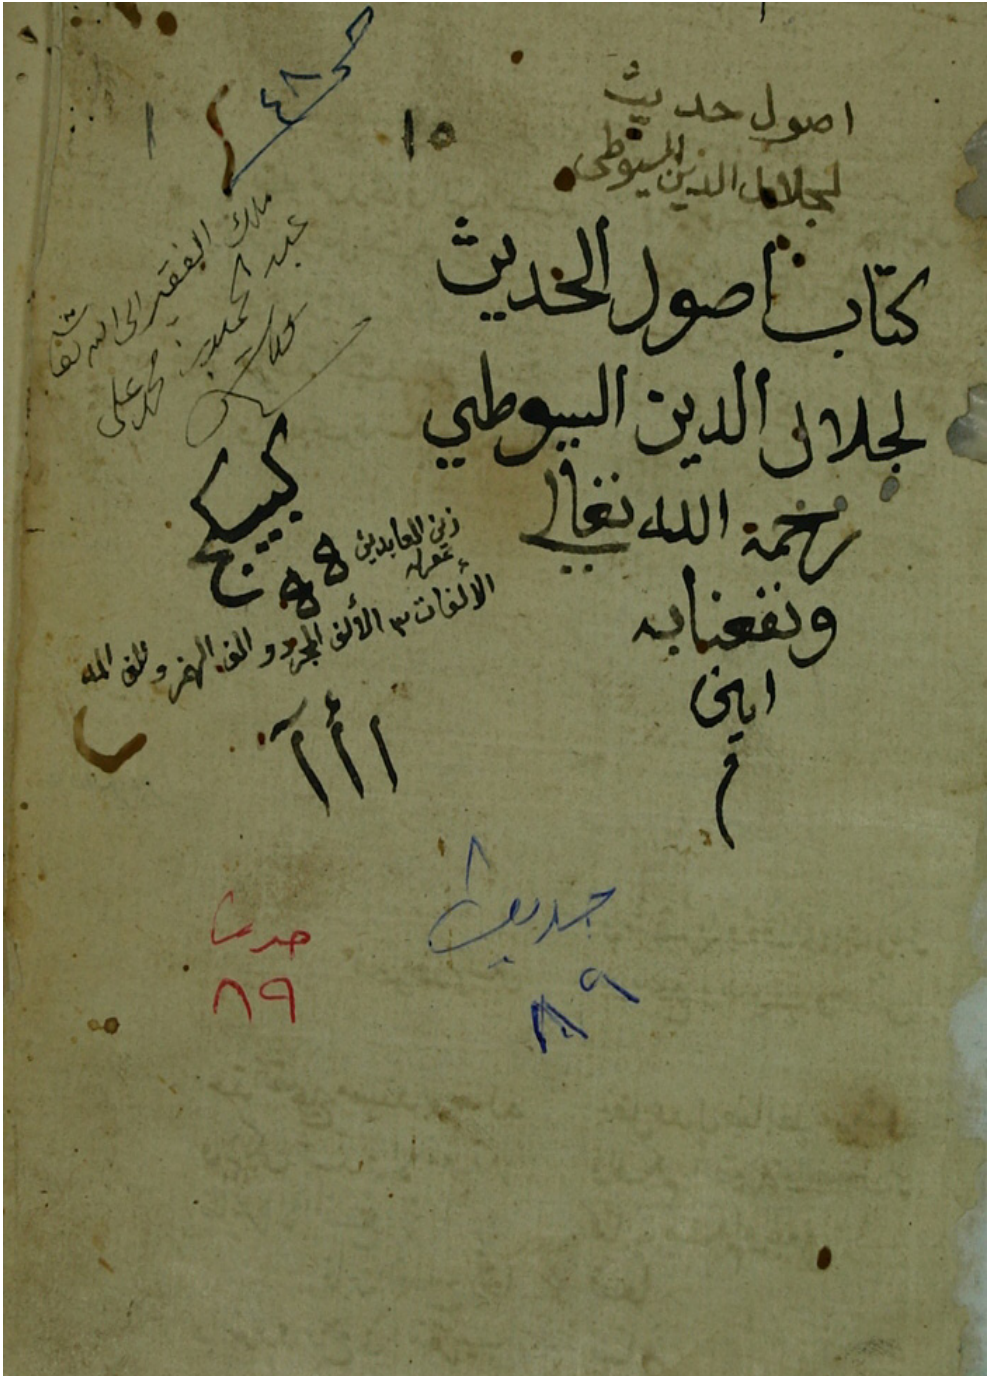 اصول حديث
لجلال الدين السيوطى
كتاب اصول الحديث
لجلال الدين السيوطي
رحمة الله تعالى
ونفعنا به
امين
م
٤٨
١٥
١
ملك الفقير الى الله تعا
عبد الحميد بن محمد على
كبيكج
زين العابدين
الألفات ٣ الألف المجرد و الف الهمز و الف المد
ا أ آ
حديث
٨٩
حديث
٨٩